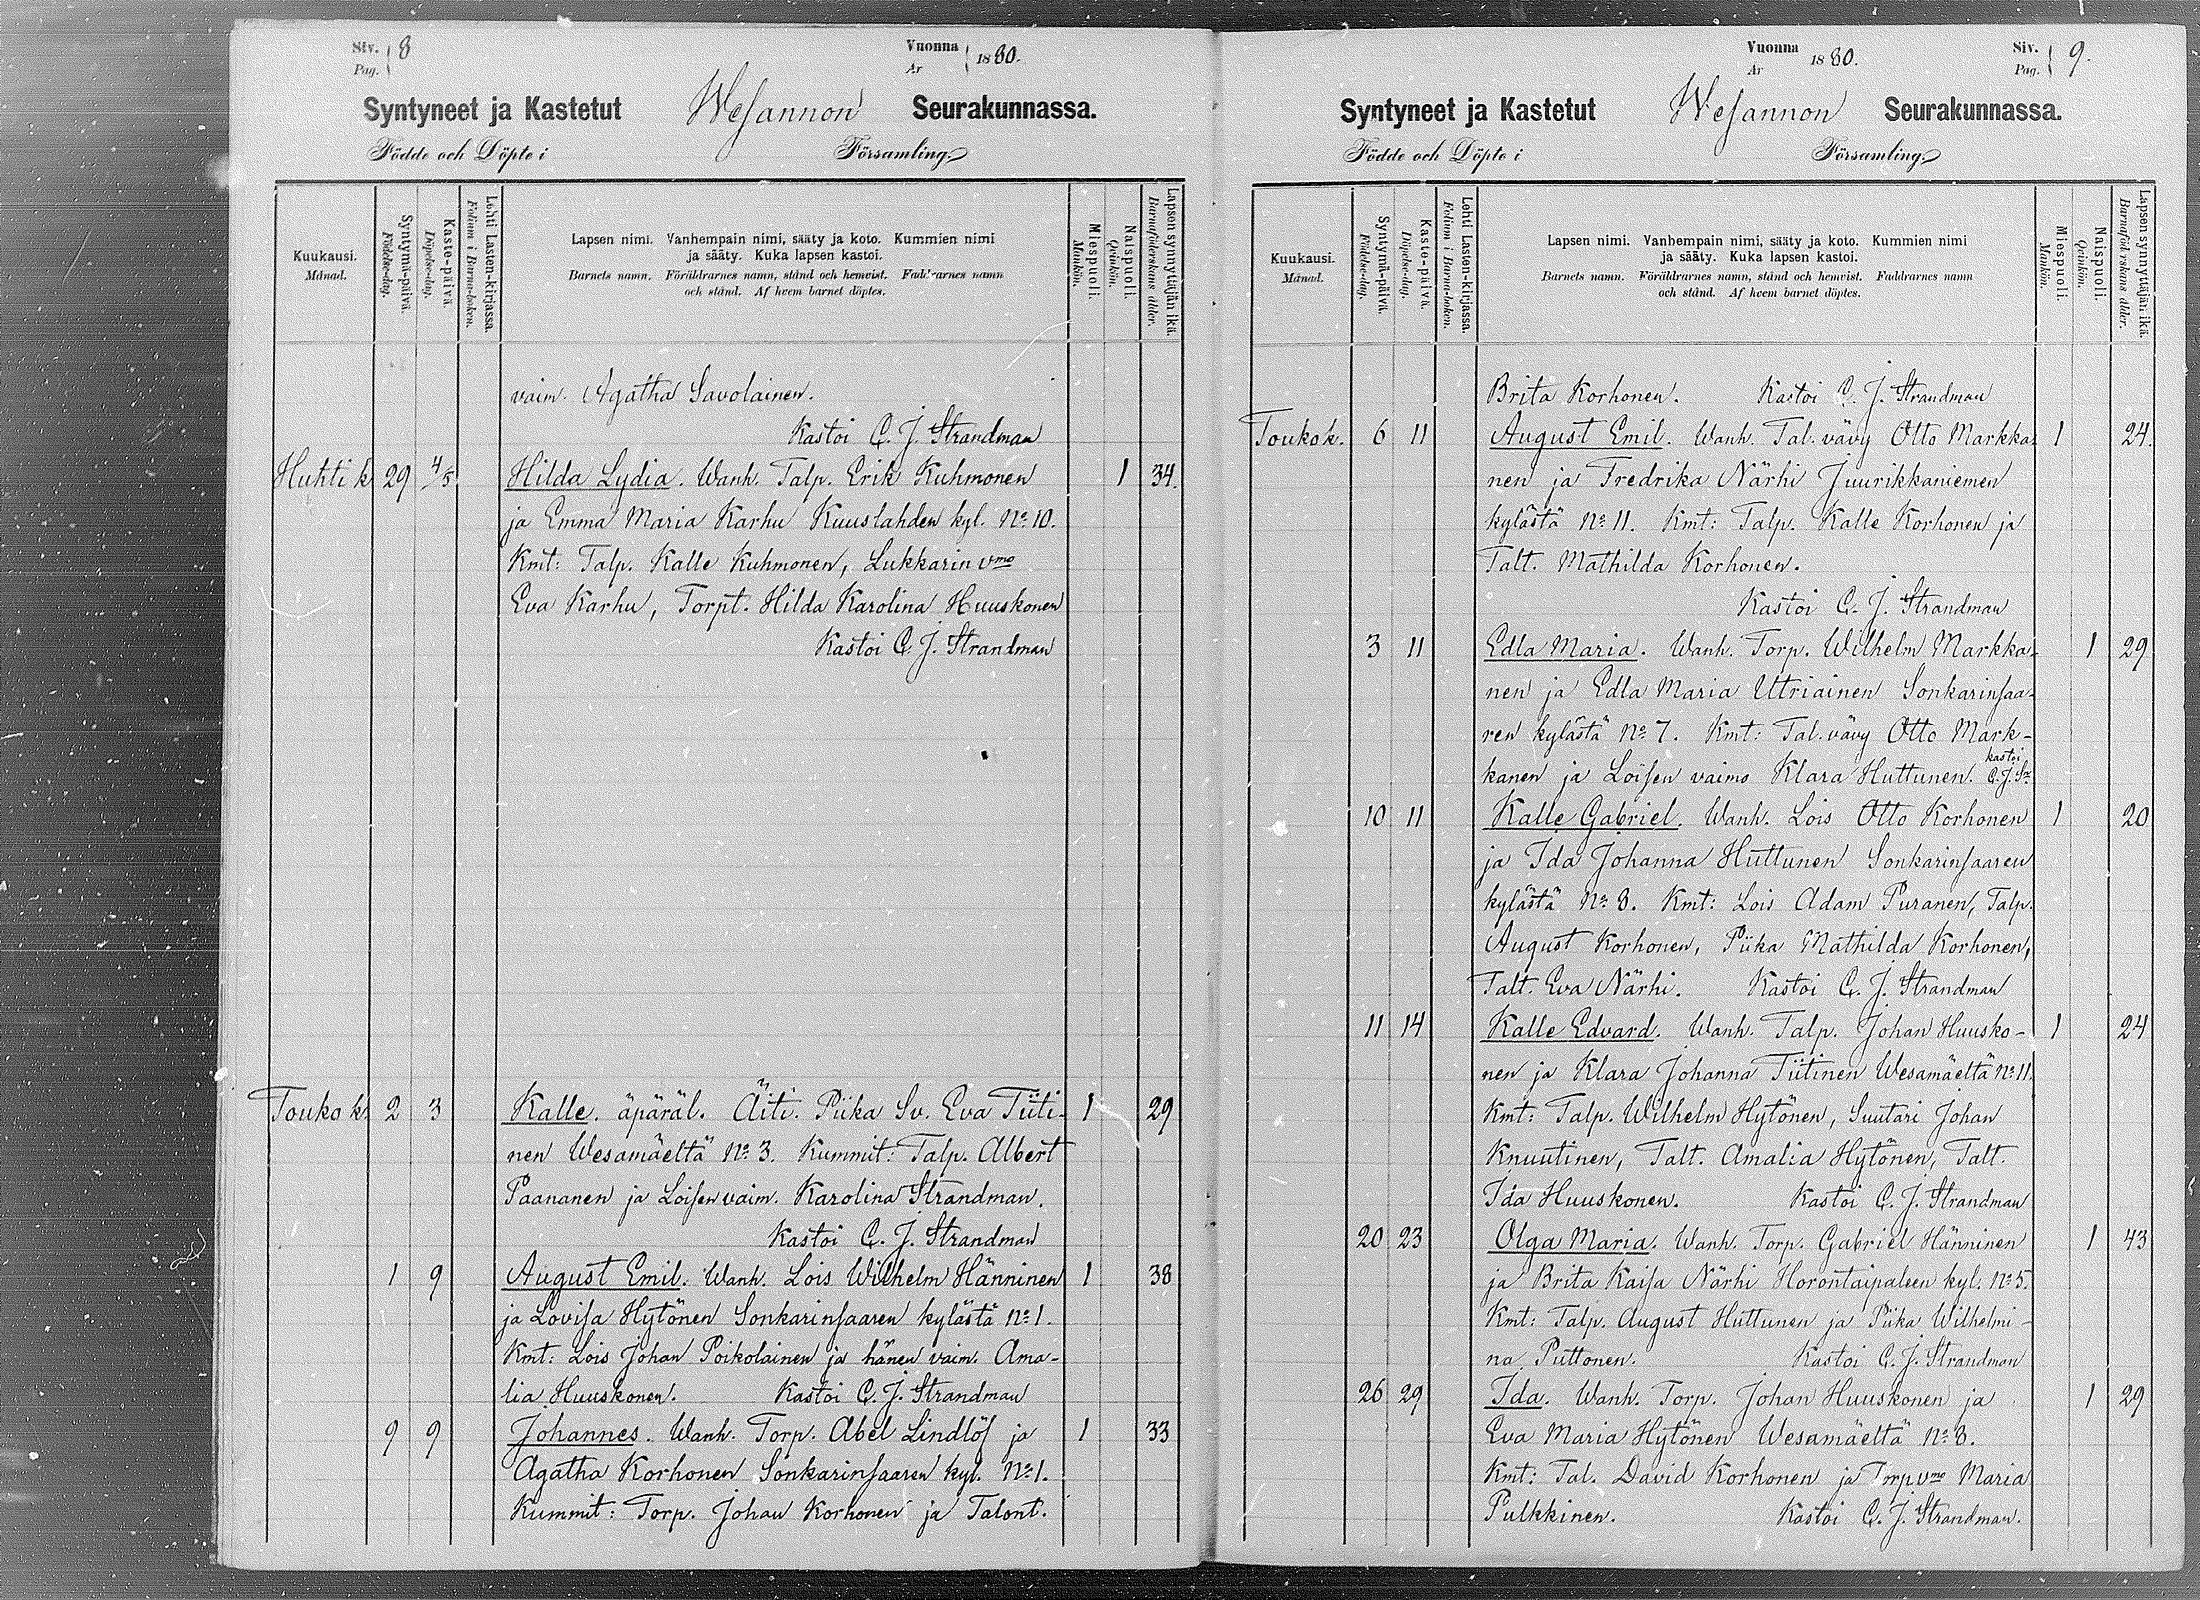 Siv. Pag. 8
Vuonna År 1880.
Syntyneet ja Kastetut Wesannon Seurakunnassa.
Födde och Döpte i Församling.
Kuukausi. Månad.
Syntymä-päivä. Födelse-dag.
Kaste-päivä. Döpelse-dag.
Lehti Lasten-kirjassa. Folium i Barna-boken.
Lapsen nimi. Vanhempain nimi, sääty ja koto. Kummien nimi
ja sääty. Kuka lapsen kastoi.
Barnets namn. Föräldrarnes namn, stånd och hemvist. Faddrarnes namn
och stånd. Af hvem barnet döptes.
Miespuoli. Mankön.
Naispuoli. Qvinkön.
Lapsen synnyttäjän ikä. Barnaföderskans ålder.
vaim. Agatha Savolainen.
Kastoi C. J. Strandman
Huhti k. 29 4/5 Hilda Lydia. Wanh. Talp. Erik Kuhmonen 1 34.
ja Emma Maria Karhu Kuuslahden kyl. No 10.
Kmt: Talp. Kalle Kuhmonen, Lukkarin vmo
Eva Karhu, Torpt. Hilda Karolina Huuskonen
Kastoi C. J. Strandman
Touko k. 2 3 Kalle. äpäräl. Äiti. Piika Sv. Eva Tiiti- 1 29
nen Wesamäeltä No 3. Kummit: Talp. Albert
Paananen ja Loisen vaim. Karolina Strandman.
Kastoi C. J. Strandman
1 9 August Emil. Wanh. Lois Wilhelm Hänninen 1 38
ja Lovisa Hytönen Sonkarinsaaren kylästä No 1.
Kmt: Lois Johan Poikolainen ja hänen vaim. Ama-
lia Huuskonen. Kastoi C. J. Strandman
9 9 Johannes. Wanh. Torp. Abel Lindlöf ja 1 33
Agatha Korhonen Sonkarinsaaren kyl. No 1.
Kummit: Torp. Johan Korhonen ja Talont.
Vuonna År 1880.
Siv. Pag. 9.
Syntyneet ja Kastetut Wesannon Seurakunnassa.
Födde och Döpte i Församling.
Kuukausi. Månad.
Syntymä-päivä. Födelse-dag.
Kaste-päivä. Döpelse-dag.
Lehti Lasten-kirjassa. Folium i Barna-boken.
Lapsen nimi. Vanhempain nimi, sääty ja koto. Kummien nimi
ja sääty. Kuka lapsen kastoi.
Barnets namn. Föräldrarnes namn, stånd och hemvist. Faddrarnes namn
och stånd. Af hvem barnet döptes.
Miespuoli. Mankön.
Naispuoli. Qvinkön.
Lapsen synnyttäjän ikä. Barnaföderskans ålder.
Brita Korhonen. Kastoi C. J. Strandman
Touko k. 6 11 August Emil. Wanh. Tal. vävy Otto Markka- 1 24.
nen ja Fredrika Närhi Juurikkaniemen
kylästä No 11. Kmt: Talp. Kalle Korhonen ja
Talt. Mathilda Korhonen.
Kastoi C. J. Strandman
3 11 Edla Maria. Wanh. Torp. Wilhelm Markka- 1 29
nen ja Edla Maria Utriainen Sonkarinsaa-
ren kylästä No 7. Kmt: Tal. vävy Otto Mark-
kanen ja Loisen vaimo Klara Huttunen. kastoi C. J. S
10 11 Kalle Gabriel. Wanh. Lois Otto Korhonen 1 20
ja Ida Johanna Huttunen Sonkarinsaaren
kylästä No 8. Kmt: Lois Adam Puranen, Talp.
August Korhonen, Piika Mathilda Korhonen,
Talt. Eva Närhi. Kastoi C. J. Strandman
11 14 Kalle Edvard. Wanh. Talp. Johan Huusko- 1 24
nen ja Klara Johanna Tiitinen Wesamäeltä No 11.
Kmt: Talp. Wilhelm Hytönen, Suutari Johan
Knuutinen, Talt. Amalia Hytönen, Talt.
Ida Huuskonen. Kastoi C. J. Strandman
20 23 Olga Maria. Wanh. Torp. Gabriel Hänninen 1 43
ja Brita Kaisa Närhi Horontaipaleen kyl. No 5.
Kmt: Talp. August Huttunen ja Piika Wilhelmi-
na Puttonen. Kastoi C. J. Strandman
26 29 Ida. Wanh. Torp. Johan Huuskonen ja 1 29
Eva Maria Hytönen Wesamäeltä No 8.
Kmt: Tal. David Korhonen ja Torp. vmo Maria
Pulkkinen. Kastoi C. J. Strandman.